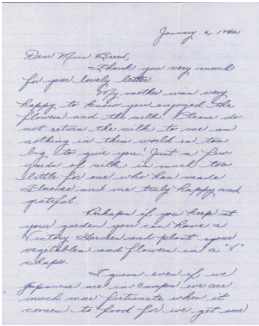 January 6, 1942
Dear Miss Breed,
Thank you very much
for your lovely letter.
My mother was very
happy to know you enjoyed the
flowers and the silk. Please do
not return the silk to me as
nothing in this world is too
big to give you. Just a few
yards of silk is much too
little for one who has made
Florence and me truly happy and
grateful.
Perhaps if you keep at
your garden you can have a
Victory Garden and plant your
vegetables and flowers in a "V"
shape.
I guess even if we
Japanese are in camps we are
much more fortunate when it
comes to food for we get our